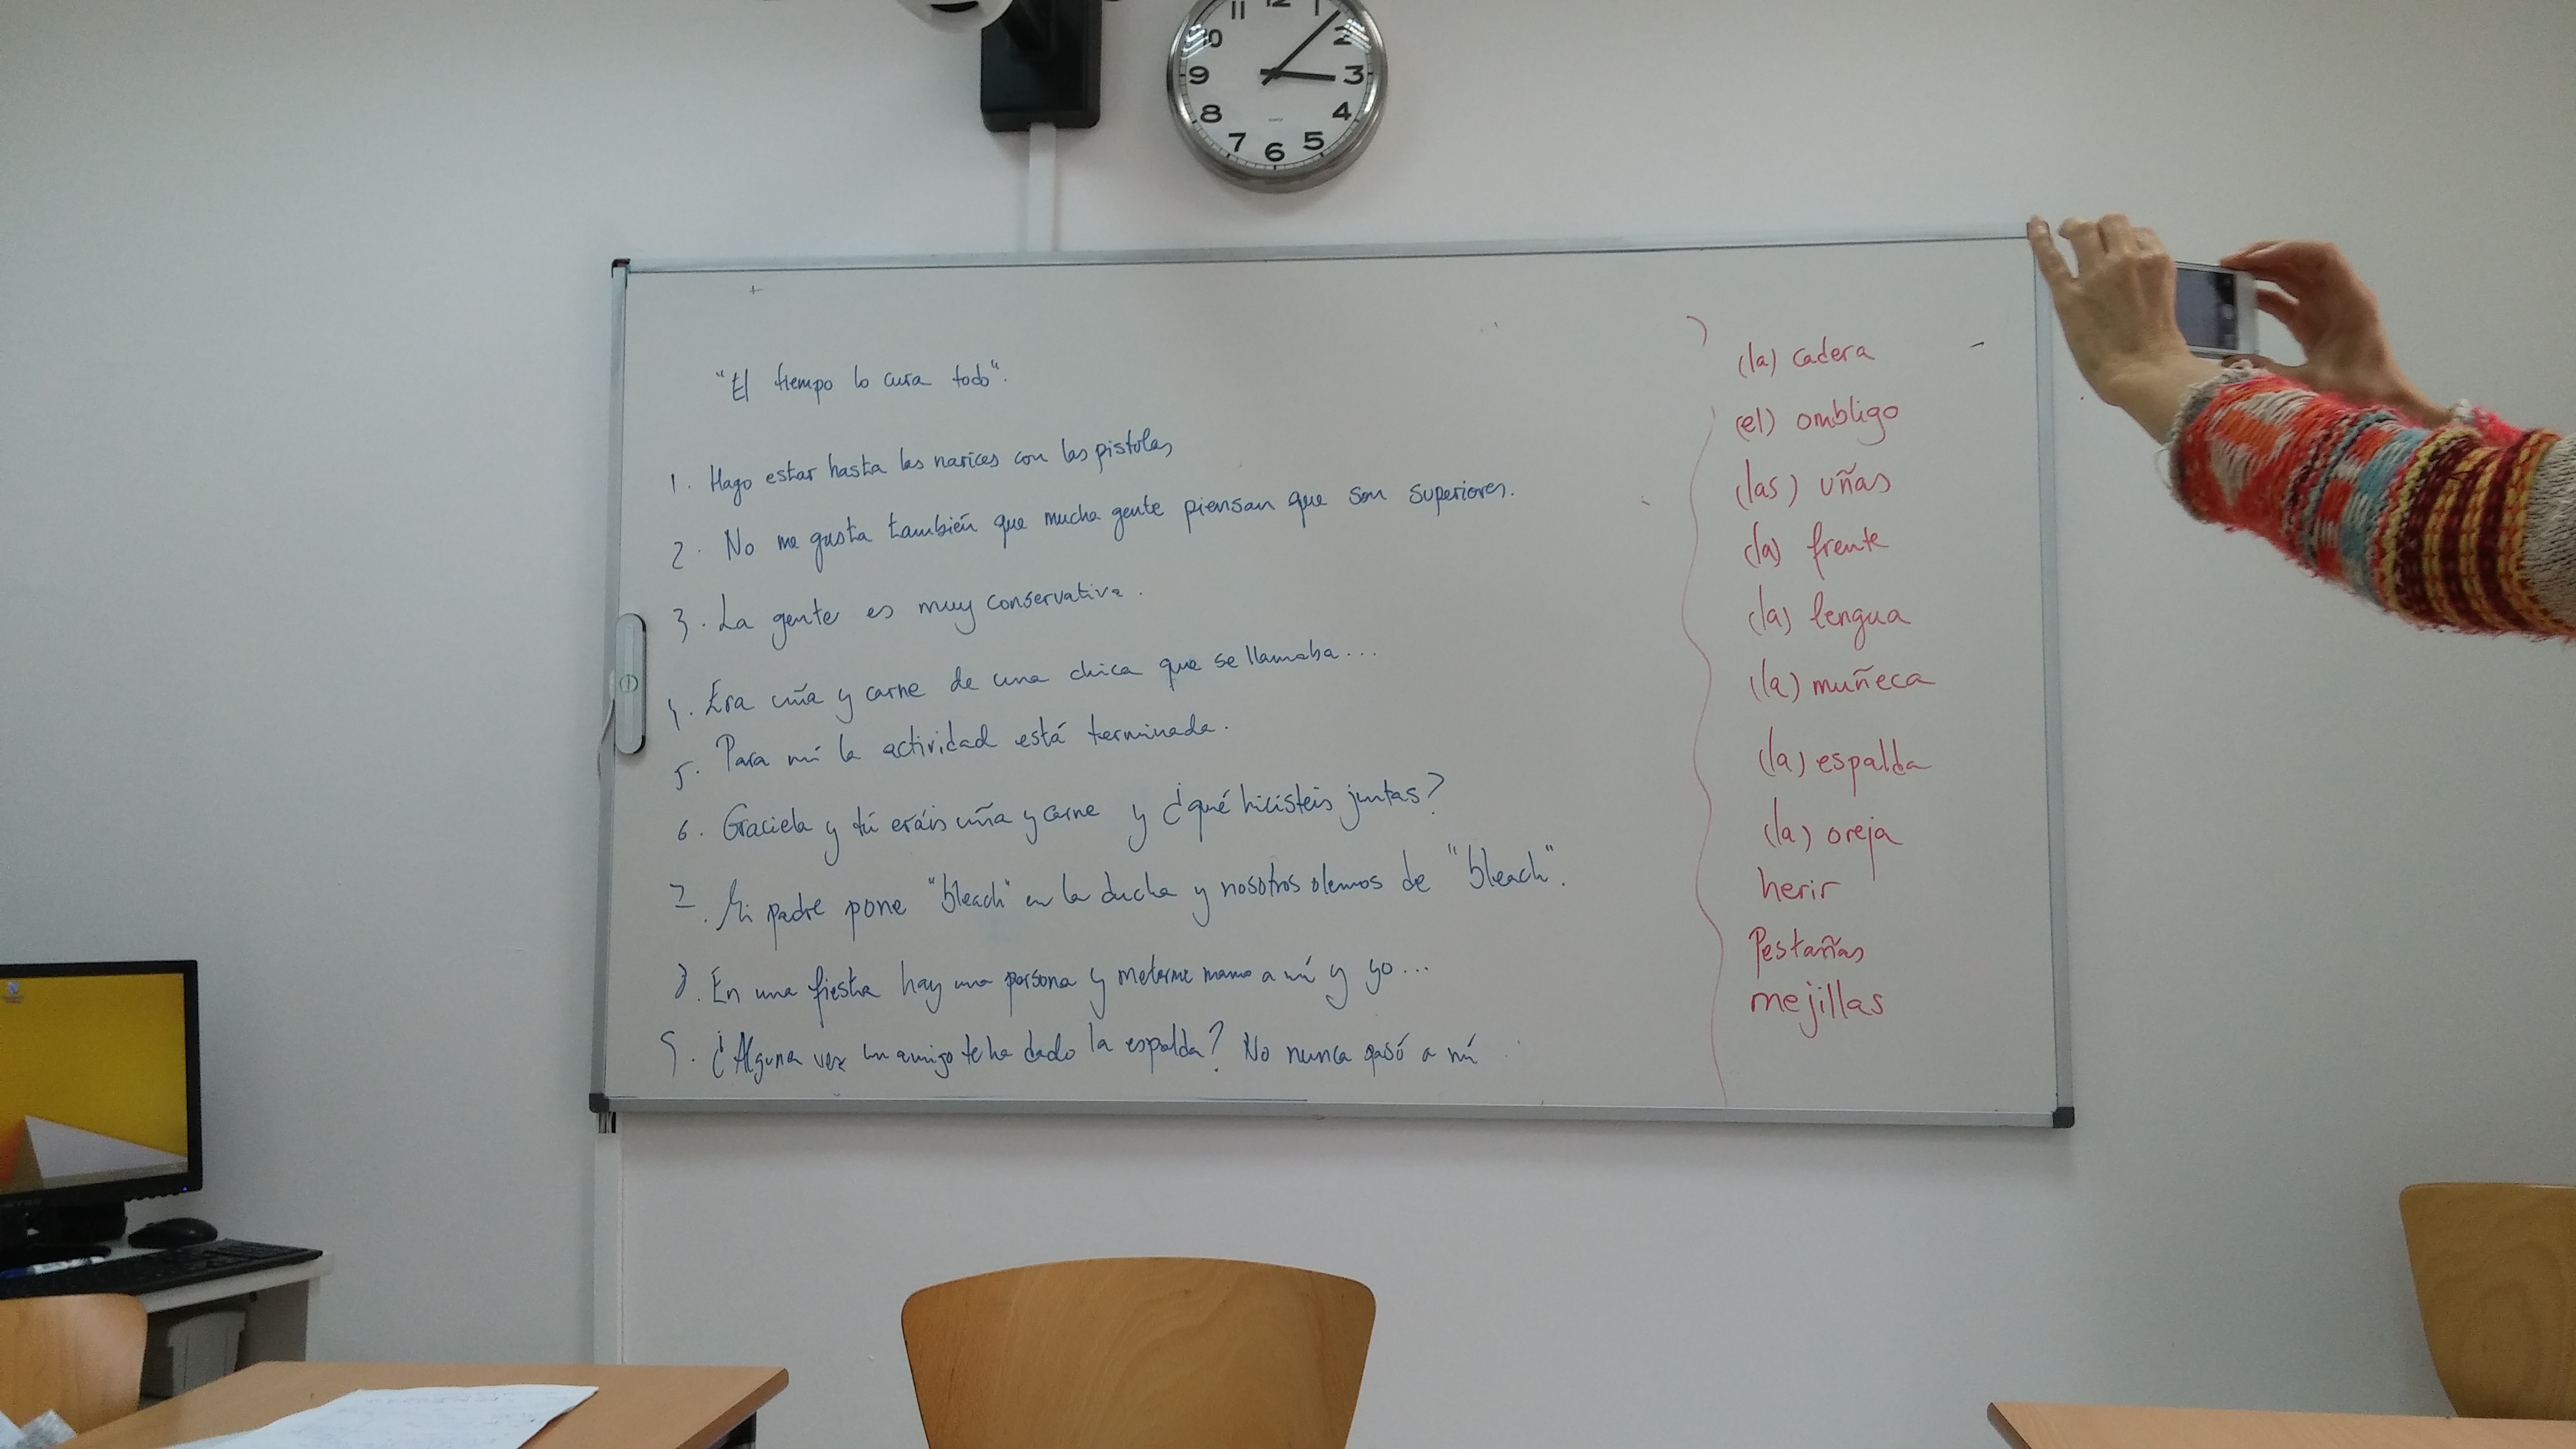 11 12 1
10 2
9 3
8 4
7 6 5
"El tiempo lo cura todo".
1. Hago estar hasta las narices con las pistolas
2. No me gusta también que mucha gente piensan que son superiores.
3. La gente es muy conservativa.
4. Era uña y carne de una chica que se llamaba...
5. Para mí la actividad está terminada.
6. Graciela y tú eráis uña y carne y ¿qué hicisteis juntas?
7. Mi padre pone "bleach" en la ducha y nosotros olemos de "bleach".
8. En una fiesta hay una persona y meterme mano a mí y yo...
9. ¿Alguna vez un amigo te ha dado la espalda? No nunca pasó a mí
(la) cadera
(el) ombligo
(las) uñas
(la) frente
(la) lengua
(la) muñeca
(la) espalda
(la) oreja
herir
Pestañas
mejillas